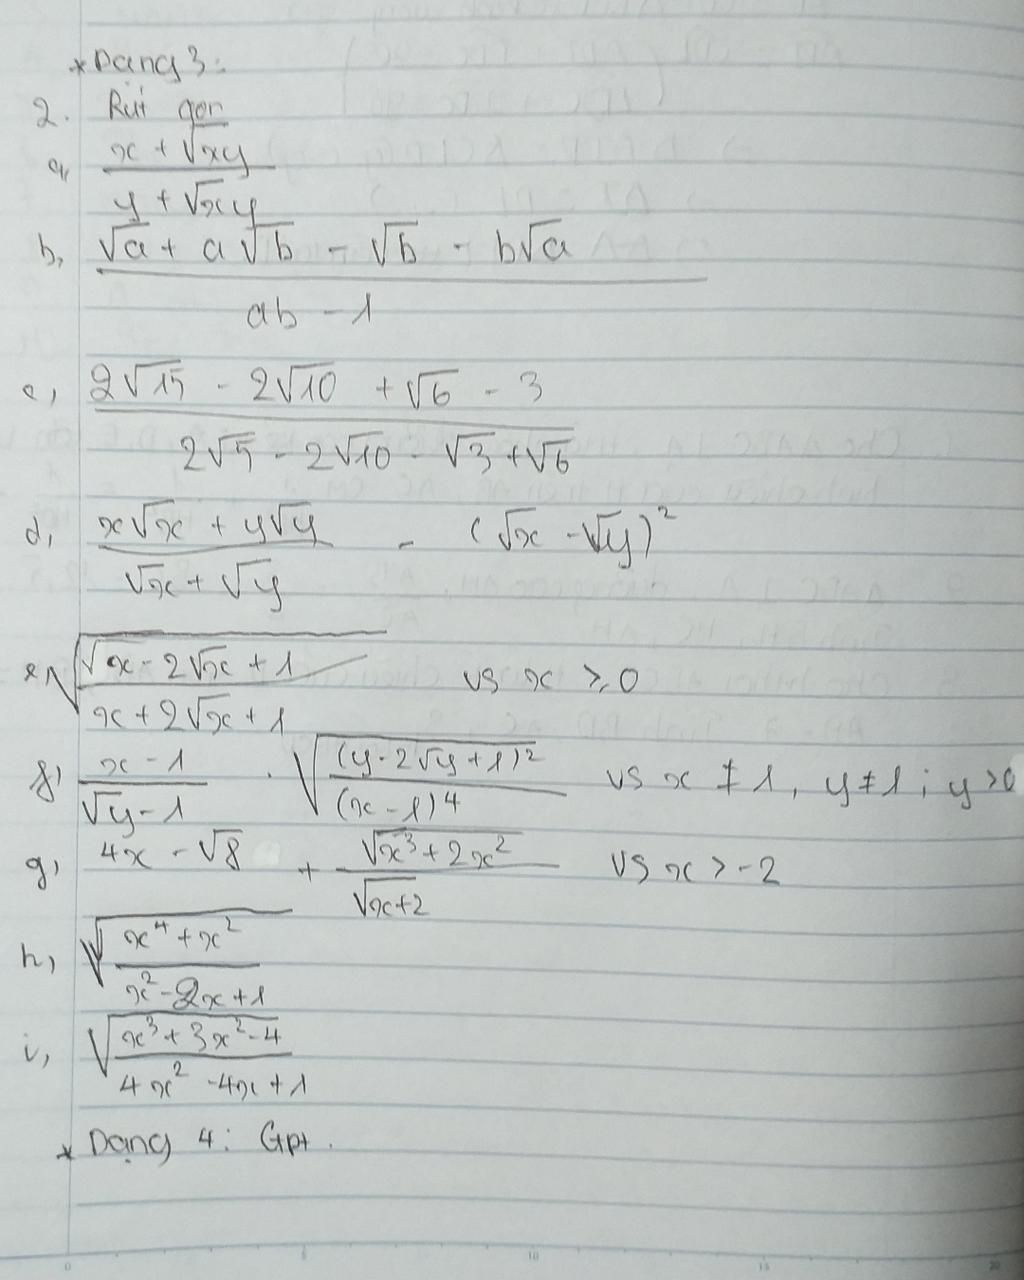 * Dạng 3:
2. Rút gọn
a, (x + √xy) / (y + √xy)
b, (√a + a√b - √b - b√a) / (ab - 1)
c, (2√15 - 2√10 + √6 - 3) / (2√5 - 2√10 - √3 + √6)
d, (x√x + y√y) / (√x + √y) - (√x - √y)²
e, √((x - 2√x + 1) / (x + 2√x + 1)) vs x ≥ 0
f, (x - 1) / (√y - 1) . √((y - 2√y + 1)² / (x - 1)⁴) vs x ≠ 1, y ≠ 1; y > 0
g, 4x - √8 + √(x³ + 2x²) / √(x+2) vs x > -2
h, √((x⁴ + x²) / (x² - 2x + 1))
i, √((x³ + 3x² - 4) / (4x² - 4x + 1))
* Dạng 4: Gpt.
0 5 10 15 20